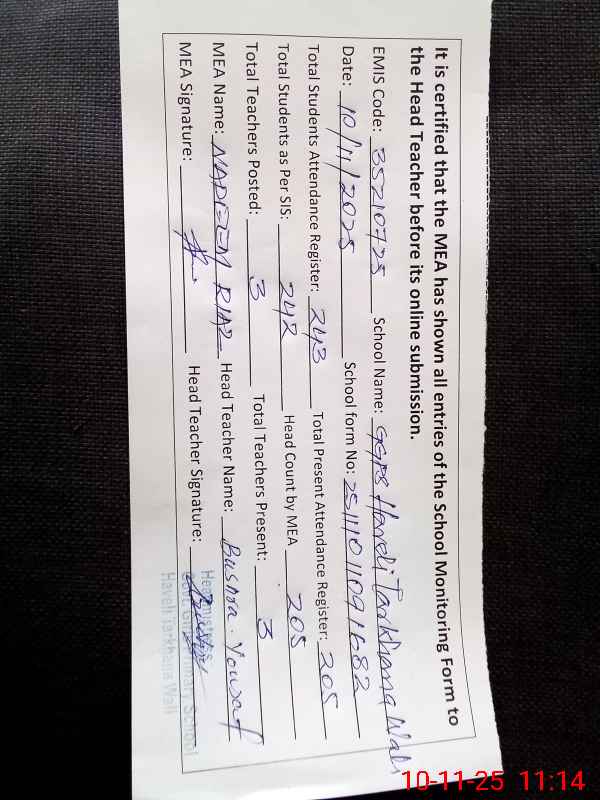 It is certified that the MEA has shown all entries of the School Monitoring Form to
the Head Teacher before its online submission.
EMIS Code: 35210725 School Name: GGPS Haveli Tarkhana Wali
Date: 10/11/2025 School form No: 2511101091682
Total Students Attendance Register: 243 Total Present Attendance Register: 205
Total Students as Per SIS: 242 Head Count by MEA 205
Total Teachers Posted: 3 Total Teachers Present: 3
MEA Name: NADEEM RIAZ Head Teacher Name: Bushra Yousaf
MEA Signature: Head Teacher Signature:
Headmistress
Govt. Girls Primary School
Haveli Tarkhana Wali
10-11-25 11:14